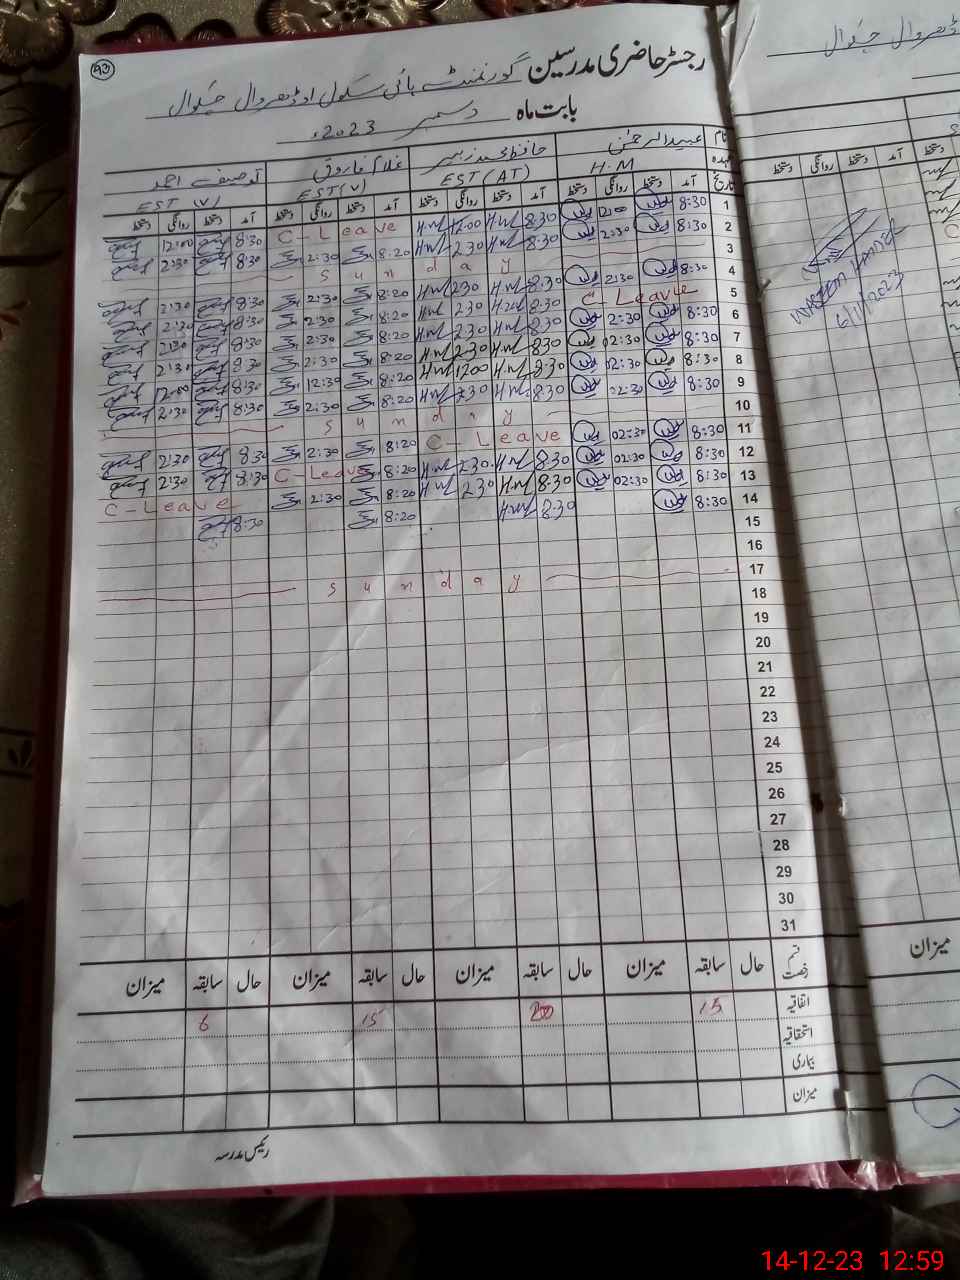 93
رجسٹر حاضری مدرسین گورنمنٹ ہائی سکول اوڈھروال چکوال
بابت ماہ دسمبر 2023ء
نام عبیدالرحمٰن حافظ محمد زبیر غلام فاروق توصیف احمد
عہدہ H.M EST (AT) EST (V) EST (V)
تاریخ آمد دستخط روانگی دستخط آمد دستخط روانگی دستخط آمد دستخط روانگی دستخط آمد دستخط روانگی دستخط
1 8:30 12:00 8:30 H.M 12:00 H.M C-Leave 8:30 12:00
2 8:30 2:30 8:30 H.M 2:30 H.M 8:20 2:30 8:30 2:30
3 Sunday
4 8:30 2:30 8:30 H.M 2:30 H.M 8:20 2:30 8:30 2:30
5 C-Leave 8:30 H.M 2:30 H.M 8:20 2:30 8:30 2:30
6 8:30 2:30 8:30 H.M 2:30 H.M 8:20 2:30 8:30 2:30
7 8:30 02:30 8:30 H.M 2:30 H.M 8:20 2:30 8:30 2:30
8 8:30 12:30 8:30 H.M 1200 H.M 8:20 12:30 8:30 12:00
9 8:30 02:30 8:30 H.M 2:30 H.M 8:20 2:30 8:30 2:30
10 Sunday
11 8:30 02:30 C-Leave 8:20 2:30 8:30 2:30
12 8:30 02:30 8:30 H.M 2:30 H.M 8:20 C-Leave 8:30 2:30
13 8:30 02:30 8:30 H.M 2:30 H.M 8:20 2:30 C-Leave
14 8:30 8:30 H.M 8:20 8:30
15
16
17 Sunday
18
19
20
21
22
23
24
25
26
27
28
29
30
31
قسم رخصت حال سابقہ میزان حال سابقہ میزان حال سابقہ میزان حال سابقہ میزان
اتفاقیہ 15 20 15 6
استحقاقیہ
بیماری
میزان
رئیس مدرسہ
اوڈھروال چکوال
آمد دستخط روانگی دستخط
WASEEM
6/11/2023
میزان
14-12-23 12:59